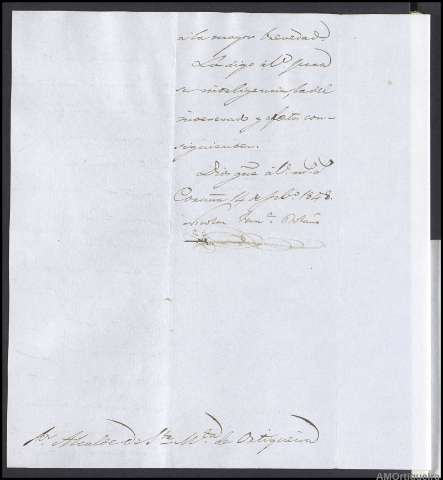 a la mayor brevedad.
Lo digo á V. para
su inteligencia, la del
interesado y efectos con-
siguientes.
Dios gue. á V. m. a.
Coruña 14 de Feb.o 1848.
Sr. Alcalde de Sta. Mta. de Ortigueira
AMOrtigueira